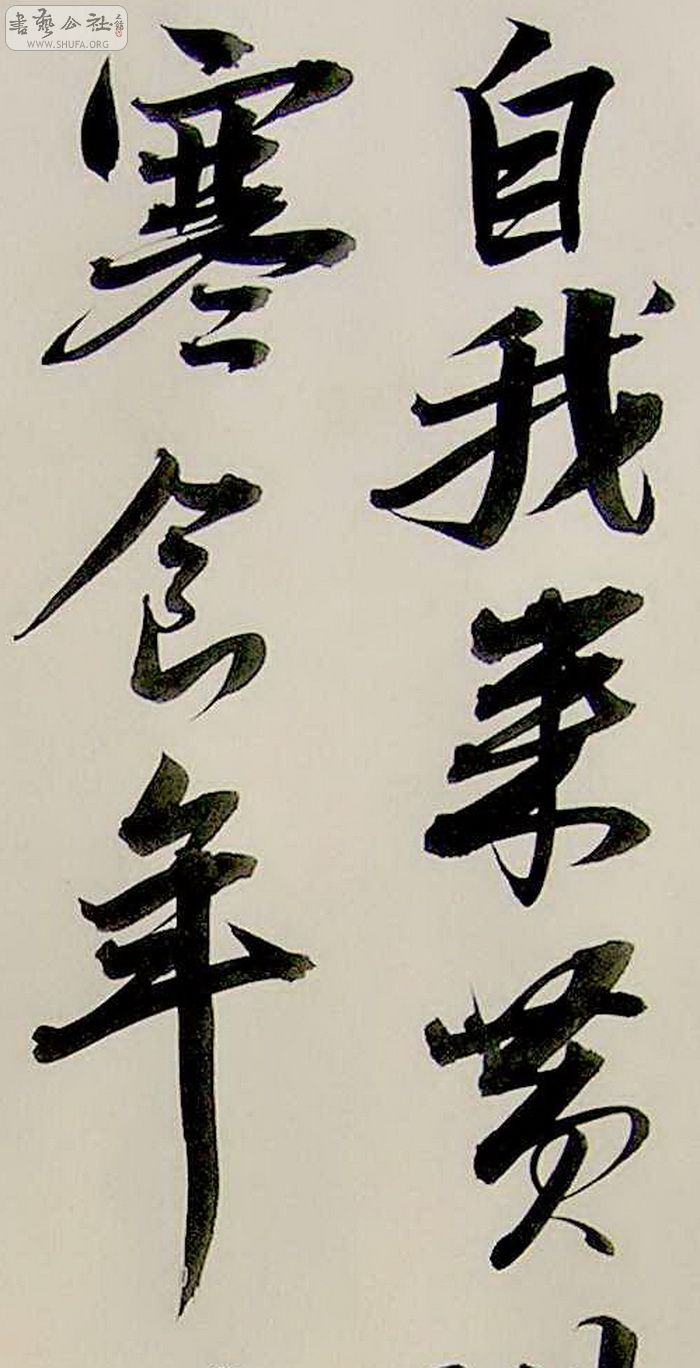 書藝公社
WWW.SHUFA.ORG
自我來黃
寒食年